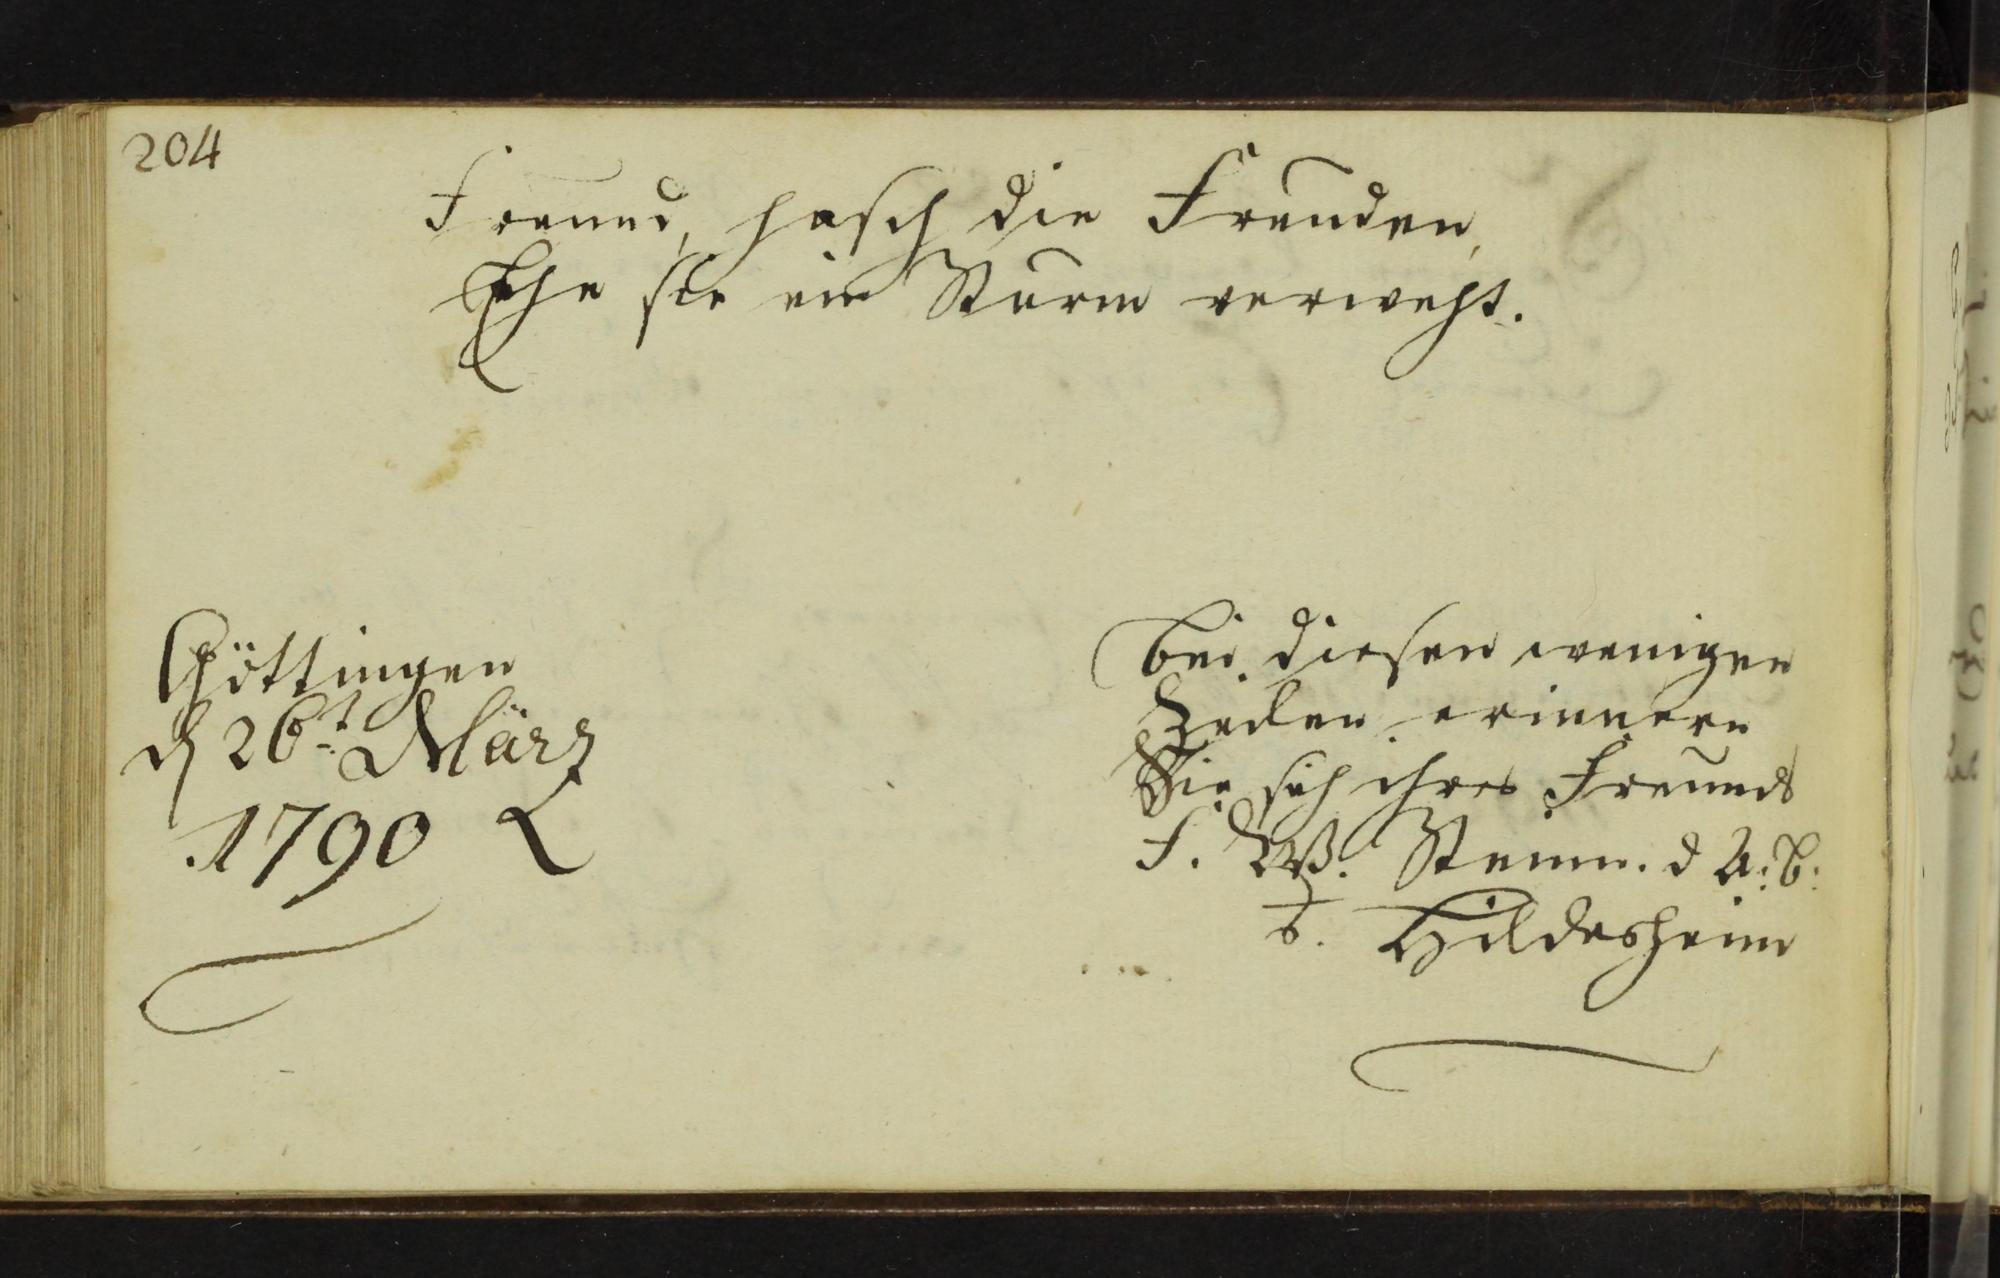 204
Freund, hasch die Freuden,
Ehe sie ein Sturm verweht.
Göttingen
d 26t. März
.1790
Bei diesen wenigen
Zeilen erinnern
Sie sich ihres Freunds
F. W. d A: B:
Hildesheim